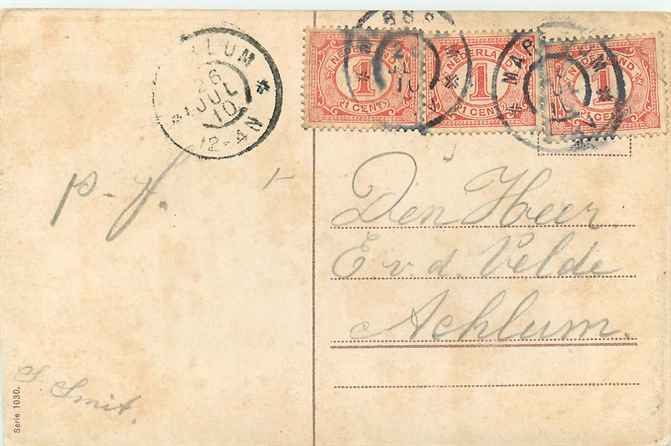 LUM
26
JUL
10
12-4N
NEDERLAND
1
1 CENT
NEDERLAND
1
1 CENT
MAR
1
1 CENT
p-f.
Den Heer
E v.d. Velde
Achlum.
S. Smit.
Serie 1030.